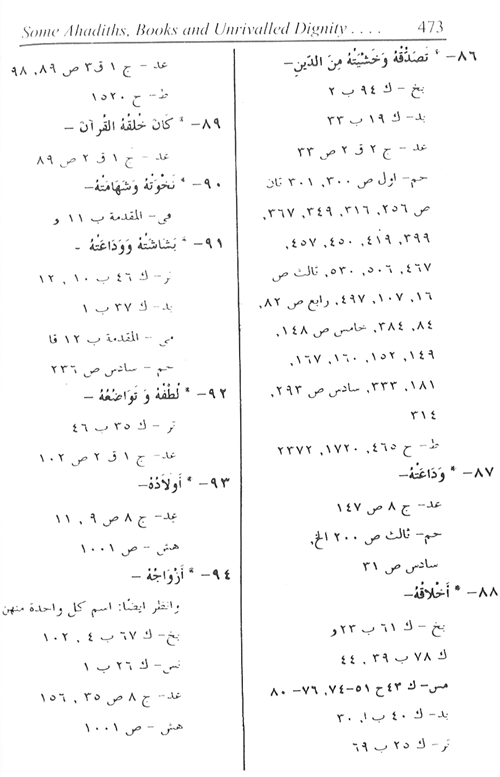 Some Ahadiths, Books and Unrivalled Dignity .... 473
٨٦- * تَصَدُّقُهُ وَخَشْيَتُهُ مِنَ الدَّيْنِ-
بخ- ك ٩٤ ب ٢
بد- ك ١٩ ب ٣٣
عد- ج ٢ ق ٢ ص ٣٣
حم- اول ص ٣٠٠, ٣٠١ ثان
ص ٢٥٦, ٣١٦, ٣٤٩, ٣٦٧,
٣٩٩, ٤١٩, ٤٥٠, ٤٥٧,
٤٦٧, ٥٠٦, ٥٣٠, ثالث ص
١٦, ١٠٧, ٤٩٧, رابع ص ٨٢,
٨٤, ٣٨٤, خامس ص ١٤٨,
١٤٩, ١٥٢, ١٦٠, ١٦٧,
١٨١, ٣٣٣, سادس ص ٢٩٣,
٣١٤
ط- ح ٤٦٥, ١٧٢٠, ٢٣٧٢
٨٧- * وَدَاعَتُهُ-
عد- ج ٨ ص ١٤٧
حم- ثالث ص ٢٠٠ الخ,
سادس ص ٣١
٨٨- * أَخْلاَقُهُ-
بخ - ك ٦١ ب ٢٣ و
ك ٧٨ ب ٣٩, ٤٤
مس- ك ٤٣ ح ٥١-٧٤, ٧٦- ٨٠
بد- ك ٤٠ ب ١, ٣٠
تر- ك ٢٥ ب ٦٩
عد- ج ١ ق ٣ ص ٨٩, ٩٨
ط- ح ١٥٢٠
٨٩- * كَانَ خُلُقُهُ القُرآنَ -
عد- ج ١ ق ٢ ص ٨٩
٩٠- * نَخْوَتُهُ وَشَهَامَتُهُ-
مى- المقدمة ب ١١ و
٩١- * بَشَاشَتُهُ وَوَدَاعَتُهُ -
تر- ك ٤٦ ب ١٠, ١٢
بد- ك ٣٧ ب ١
مى- المقدمة ب ١٢ قا
حم- سادس ص ٢٣٦
٩٢- * لُطْفُهُ وَ تَوَاضُعُهُ -
تر - ك ٣٥ ب ٤٦
عد- ج ١ ق ٢ ص ١٠٢
٩٣- * أَوْلاَدُهُ-
عد- ج ٨ ص ٩, ١١
هش- ص ١٠٠١
٩٤- * أَزْوَاجُهُ -
وانظر ايضًا: اسم كل واحدة منهن
بخ- ك ٦٧ ب ٤, ١٠٢
نس- ك ٢٦ ب ١
عد- ج ٨ ص ٣٥, ١٥٦
هش - ص ١٠٠١